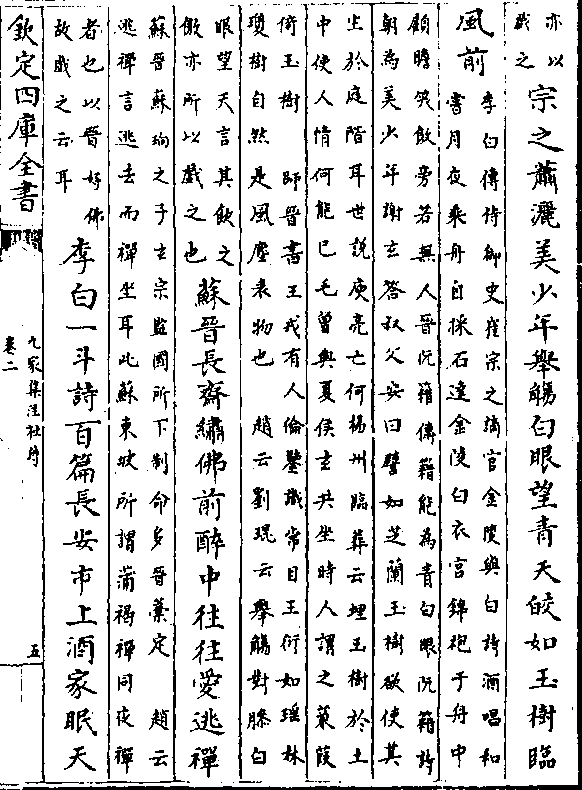 亦以
戲之
宗之蕭灑美少年舉觴白眼望青天皎如玉樹臨
風前
李白傳侍御史崔宗之謫官金陵與白詩酒唱和
嘗月夜乘舟自採石達金陵白衣宮錦袍于舟中
顧瞻笑飲旁若無人晉阮籍傳籍能為青白眼阮籍許
朝為美少年謝玄答叔父安曰譬如芝蘭玉樹欲使其
生於庭階耳世説庾亮亡何揚州臨葬云埋玉樹於土
中使人情何能已毛曾與夏侯玄共坐時人謂之蒹葭
倚玉樹 師晉書王戎有人倫鑒識常目王衍如瑶林
瓊樹自然是風塵表物也 趙云劉琨云舉觴對膝白
眼望天言其飲之
傲亦所以戲之也
蘇晉長齋繡佛前醉中往往愛逃禪
蘇晉蘇珦之子玄宗監國所下制命多晉藁定 趙云
逃禪言逃去而禪坐耳此蘇東坡所謂蒲褐禪同夜禪
者也以晉好佛
故戲之云耳
李白一斗詩百篇長安市上酒家眠天
欽定四庫全書
九家集注杜詩
卷二
五